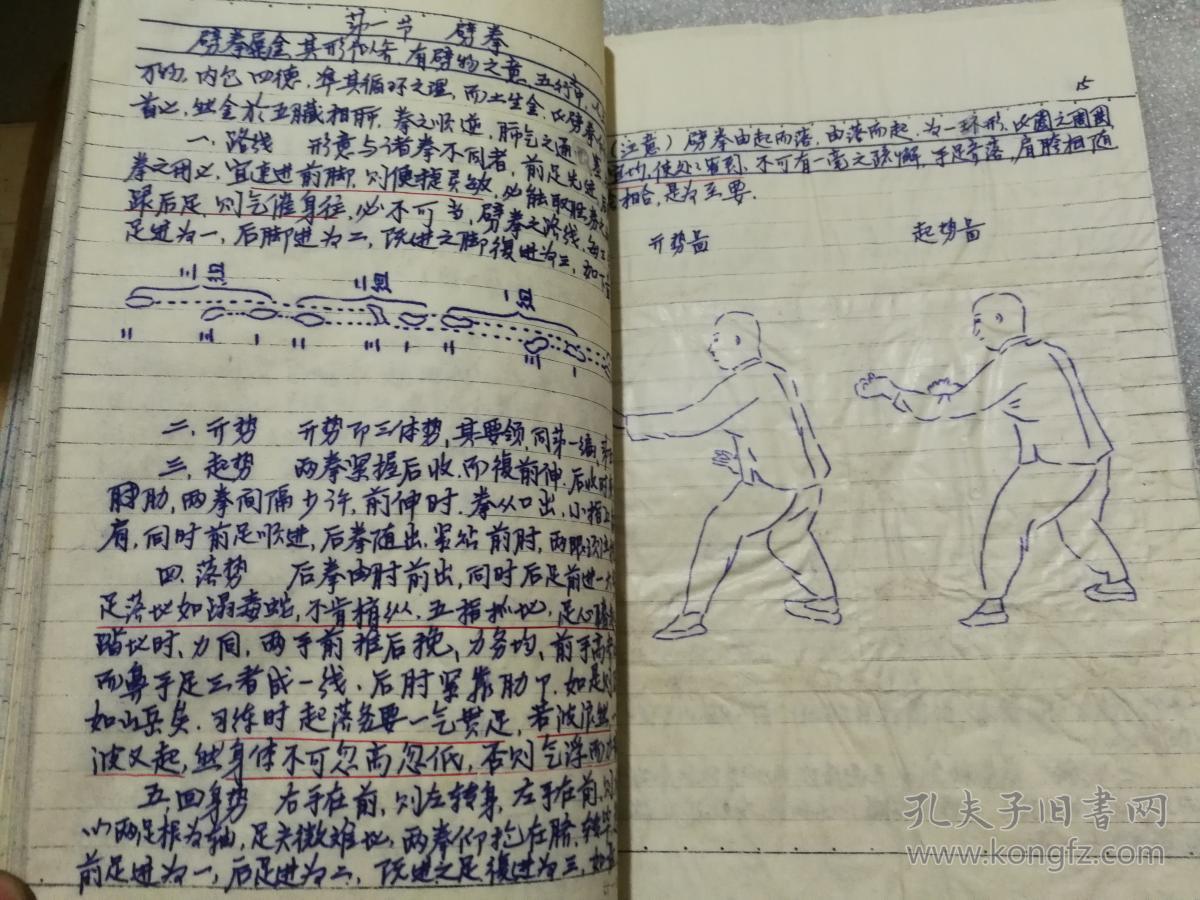 第一节 劈拳
劈拳属金,其形似斧,有劈物之意,五行中,以
万物,内包四德,准其循环之理,而土生金,此劈拳
首也,然金於五臟相肺,拳之顺逆,肺气之通
一、路线 形意与诸拳不同者,前足先进,后
拳之用也,宜速进前脚,则便捷灵敏,必能取胜,
跟后足,则气催身往,必不可当,劈拳之路线,每
足进为一,后脚进为二,既进之脚復进为三,如下
三 四 二 四 一 四
二 三 一 二 三 一 二 三 一
二、开势 开势即三体势,其要领,同第一编第
三、起势 两拳紧握后收,而復前伸,后收时
肋,两拳间隔少许,前伸时,拳从口出,小指
有,同时前足顺进,后拳随出,紧站前肘,两眼须
四、落势 后拳由肘前出,同时后足前进一大
足落地如蹋毒蛇,不肯稍纵,五指抓地,足心
踏地时,力同,两手前推后挽,力务均,前手高
而鼻手足三者成一线,后肘紧靠肋下,如是则
如山岳矣,习练时起落务要一气贯足,若波浪然
波又起,然身体不可忽高忽低,否则气浮而
五、回身势 右手在前,则左转身,左手在前,则
以两足根为轴,足尖微难地,两拳仰抱在脐,转
前足进为一,后足进为二,既进之足復进为三,如
15
(注意)劈拳由起而落,由落而起,为一环形,此圈之圈圈
宜均,使处处周到,不可有一毫之疏懈,手足齐落,肩胯相随
相合,是为至要.
开势图
起势图
孔夫子旧书网
www.kongfz.com